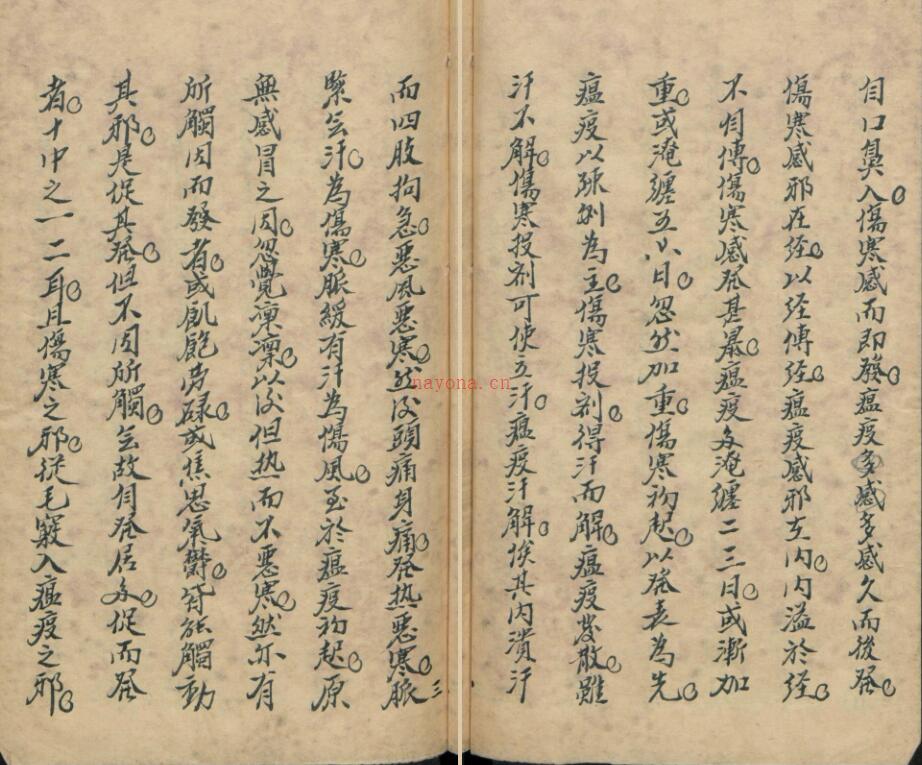 自口鼻入傷寒感而即發瘟疫多感多感久而後發
傷寒感邪在經以經傳經瘟疫感邪在內內溢於經
不自傳傷寒感發甚暴瘟疫多淹纏二三日或漸加
重或淹纏五六日忽然加重傷寒初起以發表為先
瘟疫以疎利為主傷寒投剂得汗而解瘟疫發散雖
汗不解傷寒投剂可使立汗瘟疫汗解俟其內潰汗
三
而四肢拘急惡風惡寒然後頭痛身痛發热惡寒脈
緊無汗為傷寒脈緩有汗為傷風至於瘟疫初起原
無感冒之因忽覺凜凜以後但热而不惡寒然亦有
所觸因而發者或飢飽勞碌或焦思氣鬱皆能觸動
其邪是促其發但不因所觸無故自發居多促而發
者十中之一二耳且傷寒之邪從毛竅入瘟疫之邪
nayona.cn